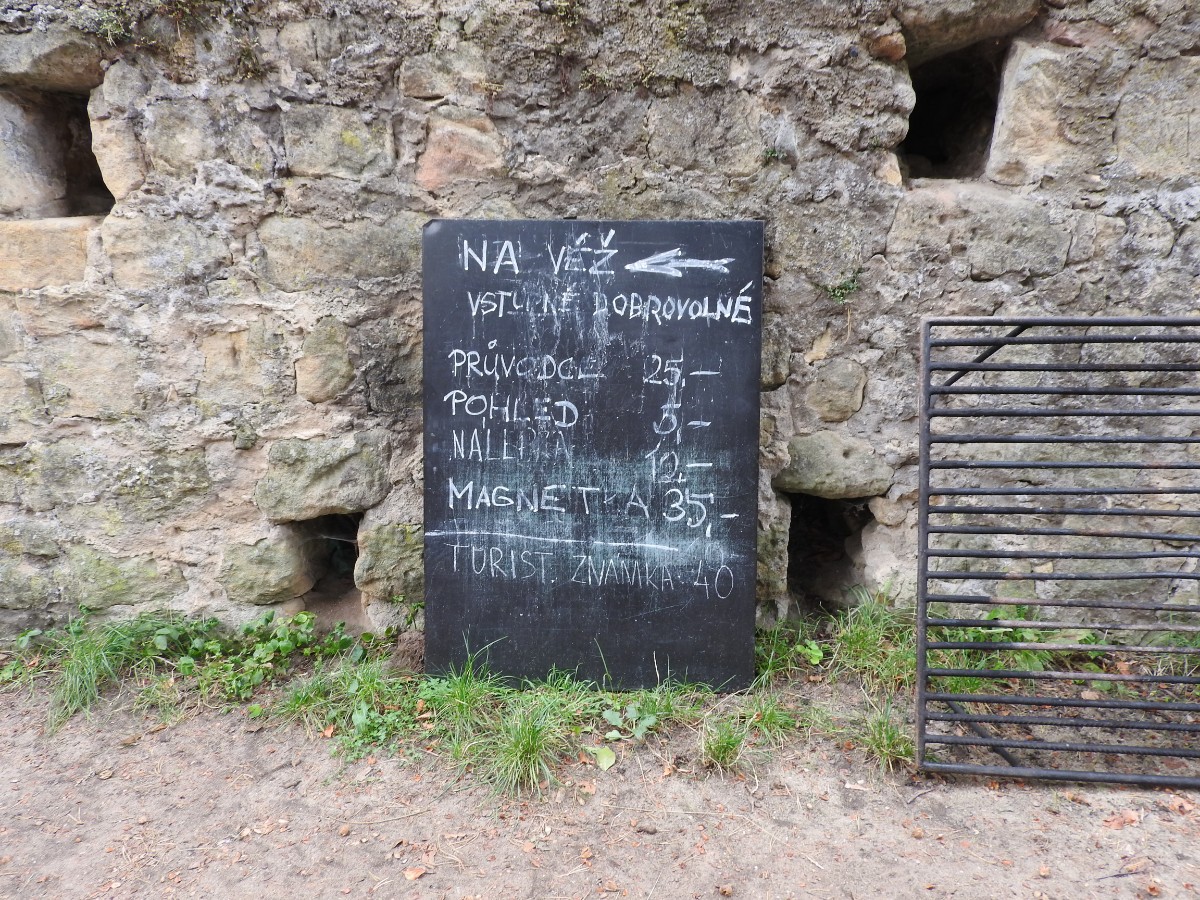 NA VĚŽ ←
VSTUPNÉ DOBROVOLNÉ
PRŮVODCE 25,–
POHLED 5,–
NALEPKA 10,–
MAGNETKA 35,–
TURIST. ZNÁMKA 40